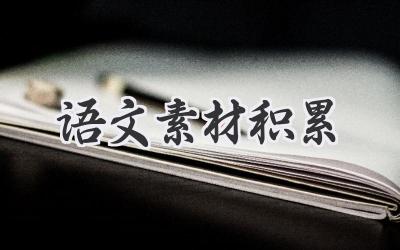 语文素材积累